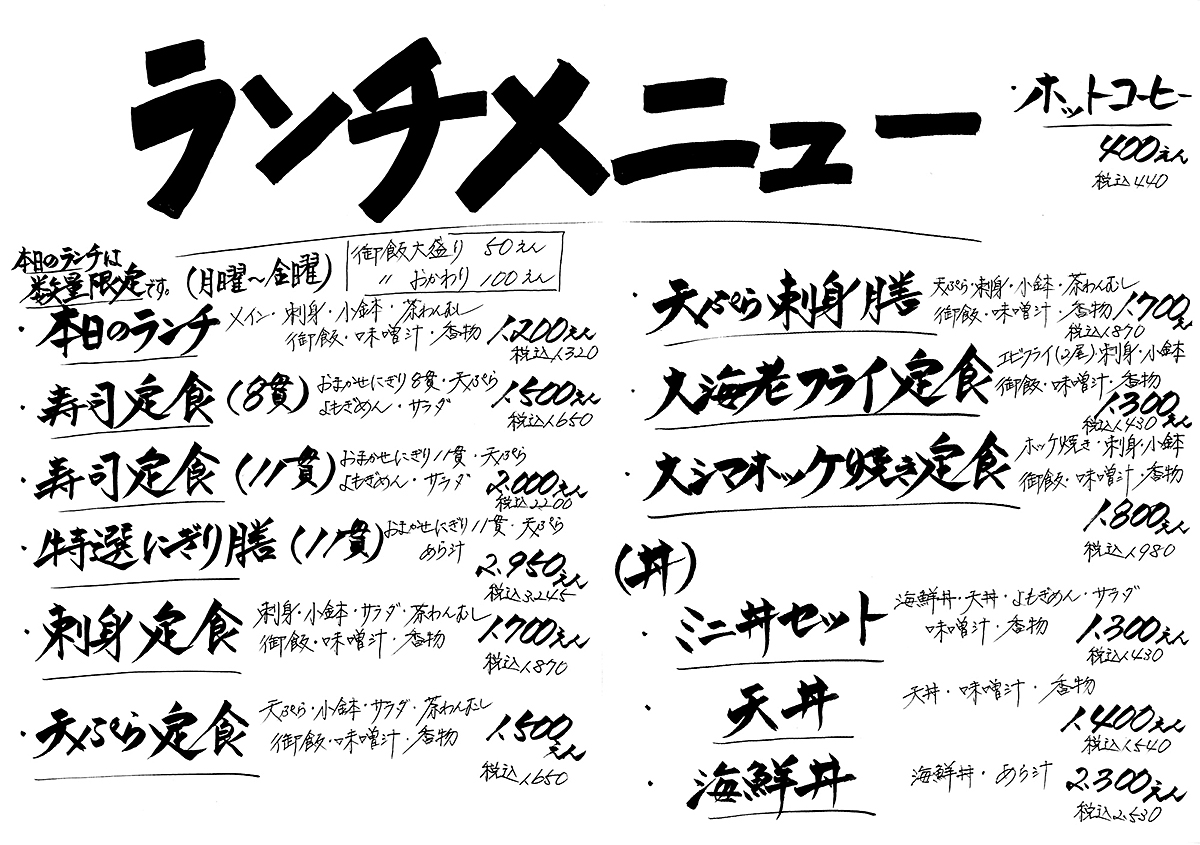 ランチメニュー
・ホットコーヒー
400えん
税込440
本日のランチは
数量限定です。
(月曜〜金曜)
御飯大盛り 50えん
〃 おかわり 100えん
・本日のランチ
メイン・刺身・小鉢・茶わんむし
御飯・味噌汁・香物
1,200えん
税込1,320
・寿司定食(8貫)
おまかせにぎり8貫・天ぷら
よもぎめん・サラダ
1,500えん
税込1,650
・寿司定食(11貫)
おまかせにぎり11貫・天ぷら
よもぎめん・サラダ
2,000えん
税込2,200
・特選にぎり膳(11貫)
おまかせにぎり11貫・天ぷら
あら汁
2,950えん
税込3,245
・刺身定食
刺身・小鉢・サラダ・茶わんむし
御飯・味噌汁・香物
1,700えん
税込1,870
・天ぷら定食
天ぷら・小鉢・サラダ・茶わんむし
御飯・味噌汁・香物
1,500えん
税込1,650
・天ぷら刺身膳
天ぷら・刺身・小鉢・茶わんむし
御飯・味噌汁・香物
1,700えん
税込1,870
・大海老フライ定食
エビフライ(2尾)・刺身・小鉢
御飯・味噌汁・香物
1,300えん
税込1,430
・大シマホッケ焼き定食
ホッケ焼き・刺身・小鉢
御飯・味噌汁・香物
1,800えん
税込1,980
(丼)
・ミニ丼セット
海鮮丼・天丼・よもぎめん・サラダ
味噌汁・香物
1,300えん
税込1,430
・天丼
天丼・味噌汁・香物
1,400えん
税込1,540
・海鮮丼
海鮮丼・あら汁
2,300えん
税込2,530